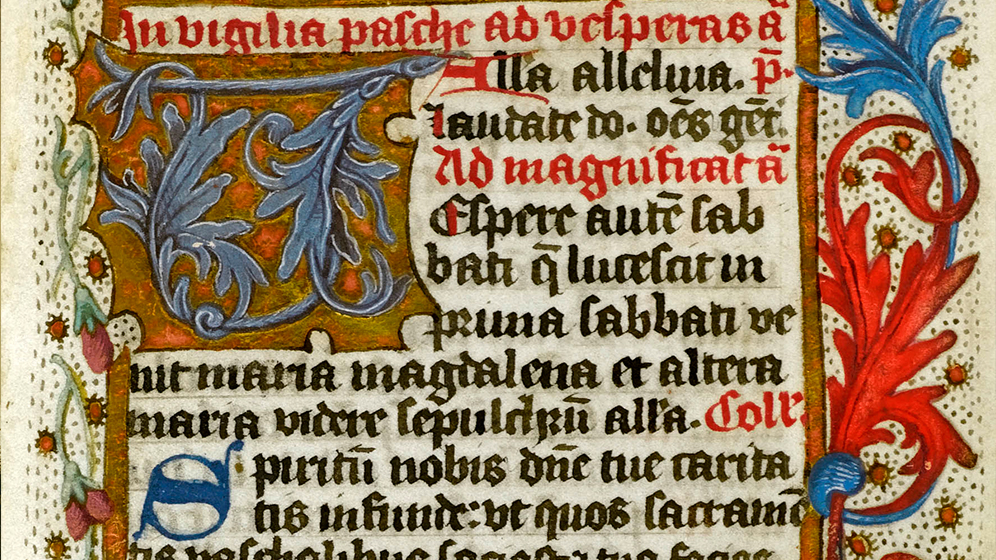 In vigilia pasche ad vesperas ā
Alla alleluia. p̄.
laudate do. om̄s gēt.
Ad magnificat ā
VEspere autē sab
bati q̄ lucescit in
prima sabbati ve
nit maria magdalena et altera
maria videre sepulchrū alla. Coll'
Spiritū nobis dn̄e tue carita
tis infunde: vt quos sacramē
tis paschalibus saciasti tua facias